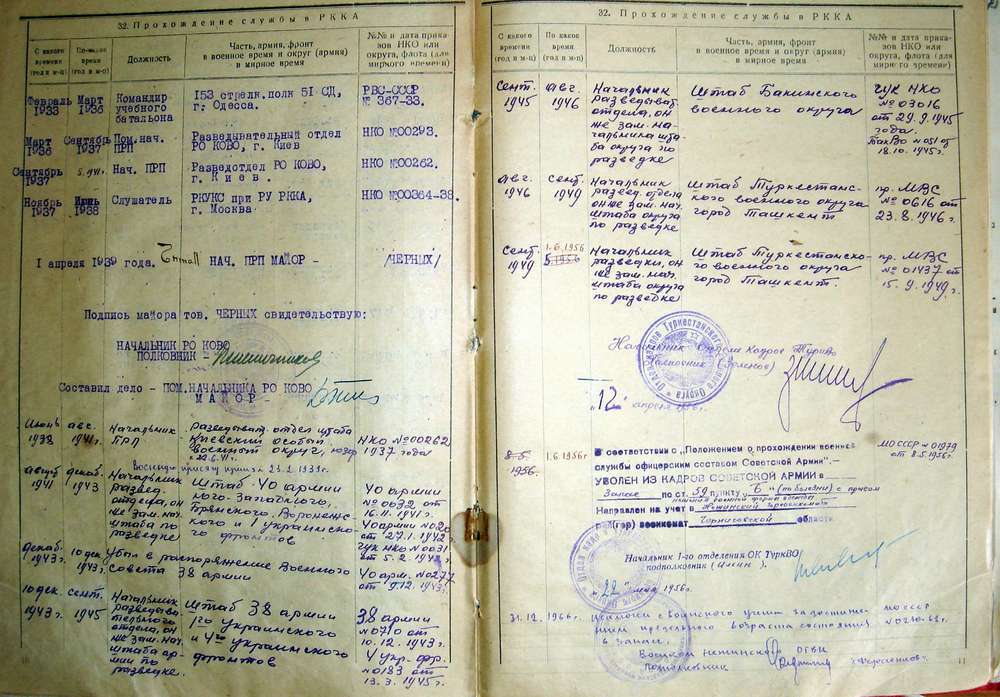 32. Прохождение службы в РККА
С какого времени (год и м-ц)
По какое время (год и м-ц)
Должность
Часть, армия, фронт в военное время и округ (армия) в мирное время
№№ и дата приказов НКО или округа, флота (для мирного времени)
Февраль 1933
Март 1936
Командир учебного батальона
153 стрелк. полк 51 СД, г. Одесса.
РВС-СССР № 367-33.
Март 1936
Сентябрь 1937
Пом. нач. ПРП
Разведывательный отдел РО КОВО, г. Киев
НКО №00293.
Сентябрь 1937
Нач. ПРП
Разведотдел РО КОВО, г. Киев.
НКО №00262.
Ноябрь 1937
Июнь 1938
Слушатель
РКУКС при РУ РККА, г. Москва
НКО №00364-38.
1 апреля 1939 года.
НАЧ. ПРП МАЙОР -
/ЧЕРНЫХ/
Подпись майора тов. ЧЕРНЫХ свидетельствую:
НАЧАЛЬНИК РО КОВО
ПОЛКОВНИК -
Составил дело - ПОМ. НАЧАЛЬНИКА РО КОВО
МАЙОР -
Июнь 1938
авг. 1941 г.
Начальник
Разведыват. отдел штаба Киевский особый военный округ,
НКО №00262 1937 года
Военную присягу принял 23.2.1939 г.
август 1941
декаб. 1943
Начальник развед. отдела, он же зам. нач. штаба по разведке
Штаб 40 армии Юго-Западного, Брянского, Воронежского и 1 украинского фронтов
40 армии №0032 от 16.9.1941 г.
40 армии №020 от 27.1.1942
ГУК НКО №0031 от 5.2.1943 г.
декаб. 1943 г.
10 дек. 1943 г.
Убыл в распоряжение Военного совета 38 армии
40 арм. №0277 от 9.12.1943 г.
10 дек. 1943 г.
сент. 1945
Начальник разведывательного отдела, он же зам. нач. штаба армии по разведке.
Штаб 38 армии 1го украинского и 4го украинского фронтов
38 армии №0710 от 10.12.1943 г.
4 укр. фр. №0183 от 13.3.1945 г.
32. Прохождение службы в РККА
С какого времени (год и м-ц)
По какое время (год и м-ц)
Должность
Часть, армия, фронт в военное время и округ (армия) в мирное время
№№ и дата приказов НКО или округа, флота (для мирного времени)
сент. 1945
авг. 1946
Начальник разведыват. отдела, он же зам. начальника штаба округа по разведке
Штаб Бакинского военного округа
ГУК НКО №03016 от 29.9.1945 года.
БакВо №051 от 18.10.1945 г.
авг. 1946
сент. 1949
Начальник развед. отдела он же зам. нач. штаба округа по разведке
Штаб Туркестанского военного округа город Ташкент
пр. МВС №0616 от 23.8.1946 г.
сент. 1949
1.6.1956
5.1956
Начальник разведки, он же зам. нач. штаба округа по разведке
Штаб Туркестанского военного округа город Ташкент.
пр. МВС №01437 от 15.9.1949 г.
Начальник отдела кадров ТуркВО
полковник
"12" апреля 1956 г.
8.5.1956.
1.6.1956 г
В соответствии с „Положением о прохождении военной
службы офицерским составом Советской Армии".—
УВОЛЕН ИЗ КАДРОВ СОВЕТСКОЙ АРМИИ в
запас по ст. 59 пункту „Б" (по болезни) с правом
ношения военной формы одежды
Направлен на учет в Нежинский
рай(гор) военкомат Черниговской области
МО СССР №01979 от 8.5.1956 г.
Начальник 1-го отделения ОК ТуркВО
подполковник
22 1956 г.
31.12.1966 г.
исключен с воинского учета за достижением предельного возраста состояния в запасе.
МО СССР
Военком Нежинского ОГВК
Полковник
11